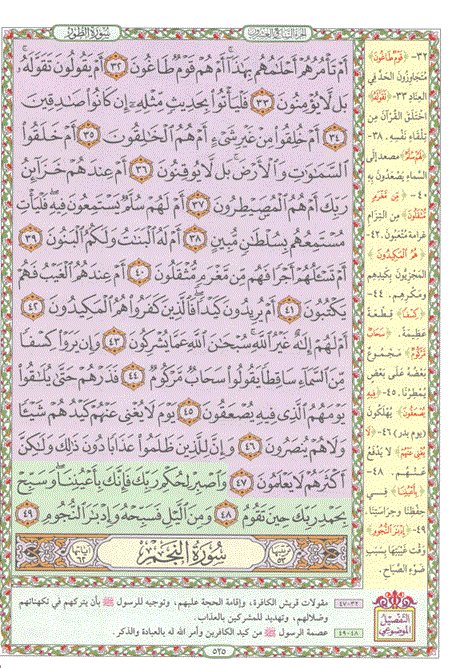 سُورَةُ الطُّورِ
الجزء السابع والعشرون
أَمْ تَأْمُرُهُمْ أَحْلَٰمُهُم بِهَٰذَآ ۚ أَمْ هُمْ قَوْمٌ طَاغُونَ ٣٢ أَمْ يَقُولُونَ تَقَوَّلَهُۥ ۚ
بَل لَّا يُؤْمِنُونَ ٣٣ فَلْيَأْتُوا۟ بِحَدِيثٍ مِّثْلِهِۦٓ إِن كَانُوا۟ صَٰدِقِينَ
٣٤ أَمْ خُلِقُوا۟ مِنْ غَيْرِ شَىْءٍ أَمْ هُمُ ٱلْخَٰلِقُونَ ٣٥ أَمْ خَلَقُوا۟
ٱلسَّمَٰوَٰتِ وَٱلْأَرْضَ ۚ بَل لَّا يُوقِنُونَ ٣٦ أَمْ عِندَهُمْ خَزَآئِنُ
رَبِّكَ أَمْ هُمُ ٱلْمُصَۣيْطِرُونَ ٣٧ أَمْ لَهُمْ سُلَّمٌ يَسْتَمِعُونَ فِيهِ ۖ فَلْيَأْتِ
مُسْتَمِعُهُم بِسُلْطَٰنٍ مُّبِينٍ ٣٨ أَمْ لَهُ ٱلْبَنَٰتُ وَلَكُمُ ٱلْبَنُونَ ٣٩
أَمْ تَسْـَٔلُهُمْ أَجْرًا فَهُم مِّن مَّغْرَمٍ مُّثْقَلُونَ ٤٠ أَمْ عِندَهُمُ ٱلْغَيْبُ فَهُمْ
يَكْتُبُونَ ٤١ أَمْ يُرِيدُونَ كَيْدًا ۖ فَٱلَّذِينَ كَفَرُوا۟ هُمُ ٱلْمَكِيدُونَ ٤٢
أَمْ لَهُمْ إِلَٰهٌ غَيْرُ ٱللَّهِ ۚ سُبْحَٰنَ ٱللَّهِ عَمَّا يُشْرِكُونَ ٤٣ وَإِن يَرَوْا۟ كِسْفًا
مِّنَ ٱلسَّمَآءِ سَاقِطًا يَقُولُوا۟ سَحَابٌ مَّرْكُومٌ ٤٤ فَذَرْهُمْ حَتَّىٰ يُلَٰقُوا۟
يَوْمَهُمُ ٱلَّذِى فِيهِ يُصْعَقُونَ ٤٥ يَوْمَ لَا يُغْنِى عَنْهُمْ كَيْدُهُمْ شَيْـًٔا
وَلَا هُمْ يُنصَرُونَ ٤٦ وَإِنَّ لِلَّذِينَ ظَلَمُوا۟ عَذَابًا دُونَ ذَٰلِكَ وَلَٰكِنَّ
أَكْثَرَهُمْ لَا يَعْلَمُونَ ٤٧ وَٱصْبِرْ لِحُكْمِ رَبِّكَ فَإِنَّكَ بِأَعْيُنِنَا ۖ وَسَبِّحْ
بِحَمْدِ رَبِّكَ حِينَ تَقُومُ ٤٨ وَمِنَ ٱلَّيْلِ فَسَبِّحْهُ وَإِدْبَٰرَ ٱلنُّجُومِ ٤٩
سُورَةُ النَّجْمِ
٣٢- ﴿قَوْمٌ طَاغُونَ﴾
مُتَجَاوِزُونَ الحَدَّ فِي
العِنَادِ ٣٣- ﴿تَقَوَّلَهُ﴾
اخْتَلَقَ القُرْآنَ مِنْ
تِلْقَاءِ نَفْسِهِ. ٣٨-
﴿لَهُمْ سُلَّمٌ﴾ مصعد إلى
السماء يَصْعَدُونَ بِهِ
٤٠- ﴿مِّن مَّغْرَمٍ
مُّثْقَلُونَ﴾ مِنِ التِزَامِ
غرامة مُتْعَبُونَ. ٤٢-
﴿هُمُ الْمَكِيدُونَ﴾
المَجْزِيُّونَ بِكَيْدِهِم
ومَكْرِهِم. ٤٤-
﴿كِسْفًا﴾ قِطْعَةً
عَظِيمَةً. ﴿سَحَابٌ
مَّرْكُومٌ﴾ مَجْمُوعٌ
بَعْضُهُ عَلَى بَعْضٍ
يُمْطِرُنَا. ٤٥- ﴿فِيهِ
يُصْعَقُونَ﴾ يُهْلَكُونَ
(يوم بدر) ٤٦- ﴿لَا
يُغْنِي عَنْهُمْ﴾ لا يَدْفَعُ
عَنْهُم. ٤٨-
﴿بِأَعْيُنِنَا﴾ فِي
حِفْظِنَا وحِرَاسَتِنَا.
٤٩- ﴿إِدْبَارَ النُّجُومِ﴾
وَقْتَ غَيْبَتِهَا بِسَبَبِ
ضَوْءِ الصَّبَاحِ.
التفصيل الموضوعي
٣٢-٤٧ مقولات قريش الكافرة، وإقامة الحجة عليهم، وتوجيه للرسول ﷺ بأن يتركهم في تكهناتهم
وضلالهم، وتهديد للمشركين بالعذاب.
٤٨-٤٩ عصمة الرسول ﷺ من كيد الكافرين وأمر الله له بالعبادة والذكر.
٥٢٥